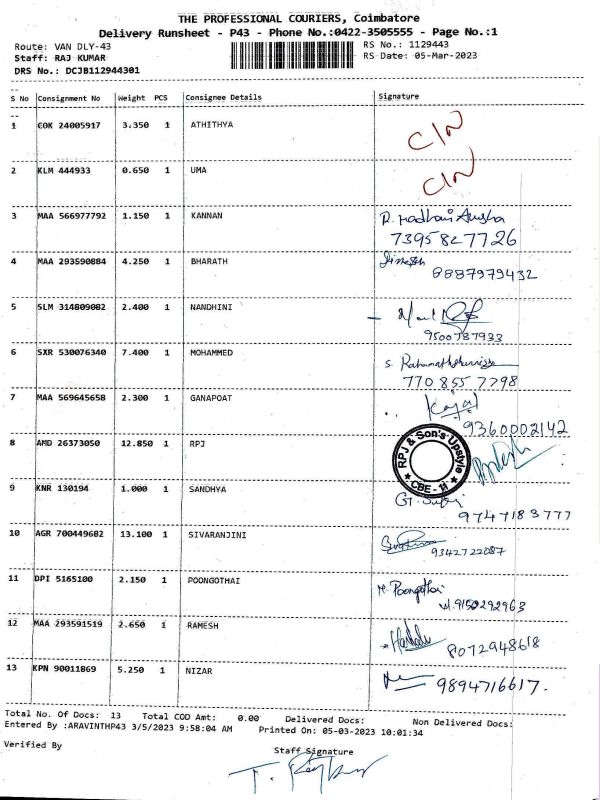 THE PROFESSIONAL COURIERS, Coimbatore
Delivery Runsheet - P43 - Phone No.:0422-3505555 - Page No.:1
Route: VAN DLY-43
RS No.: 1129443
Staff: RAJ KUMAR
RS Date: 05-Mar-2023
DRS No.: DCJB112944301
S No Consignment No Weight PCS Consignee Details Signature
1 COK 24005917 3.350 1 ATHITHYA C/N
2 KLM 444933 0.650 1 UMA C/N
3 MAA 566977792 1.150 1 KANNAN
7395827726
4 MAA 293590884 4.250 1 BHARATH Dinesh
8887979432
5 SLM 314809082 2.400 1 NANDHINI
9500787933
6 SXR 530076340 7.400 1 MOHAMMED
770 855 7798
7 MAA 569645658 2.300 1 GANAPOAT Kajal
9360002142
8 AMD 26373050 12.850 1 RPJ
RPJ & Son's Upstyle
CBE - 11
9 KNR 130194 1.000 1 SANDHYA
9747183777
10 AGR 700449682 13.100 1 SIVARANJINI
9342722087
11 DPI 5165100 2.150 1 POONGOTHAI M. Poongothai
9150292963
12 MAA 293591519 2.650 1 RAMESH
8072948618
13 KPN 90011869 5.250 1 NIZAR
9894716617.
Total No. Of Docs: 13 Total COD Amt: 0.00 Delivered Docs: Non Delivered Docs:
Entered By :ARAVINTHP43 3/5/2023 9:58:04 AM Printed On: 05-03-2023 10:01:34
Verified By
Staff Signature